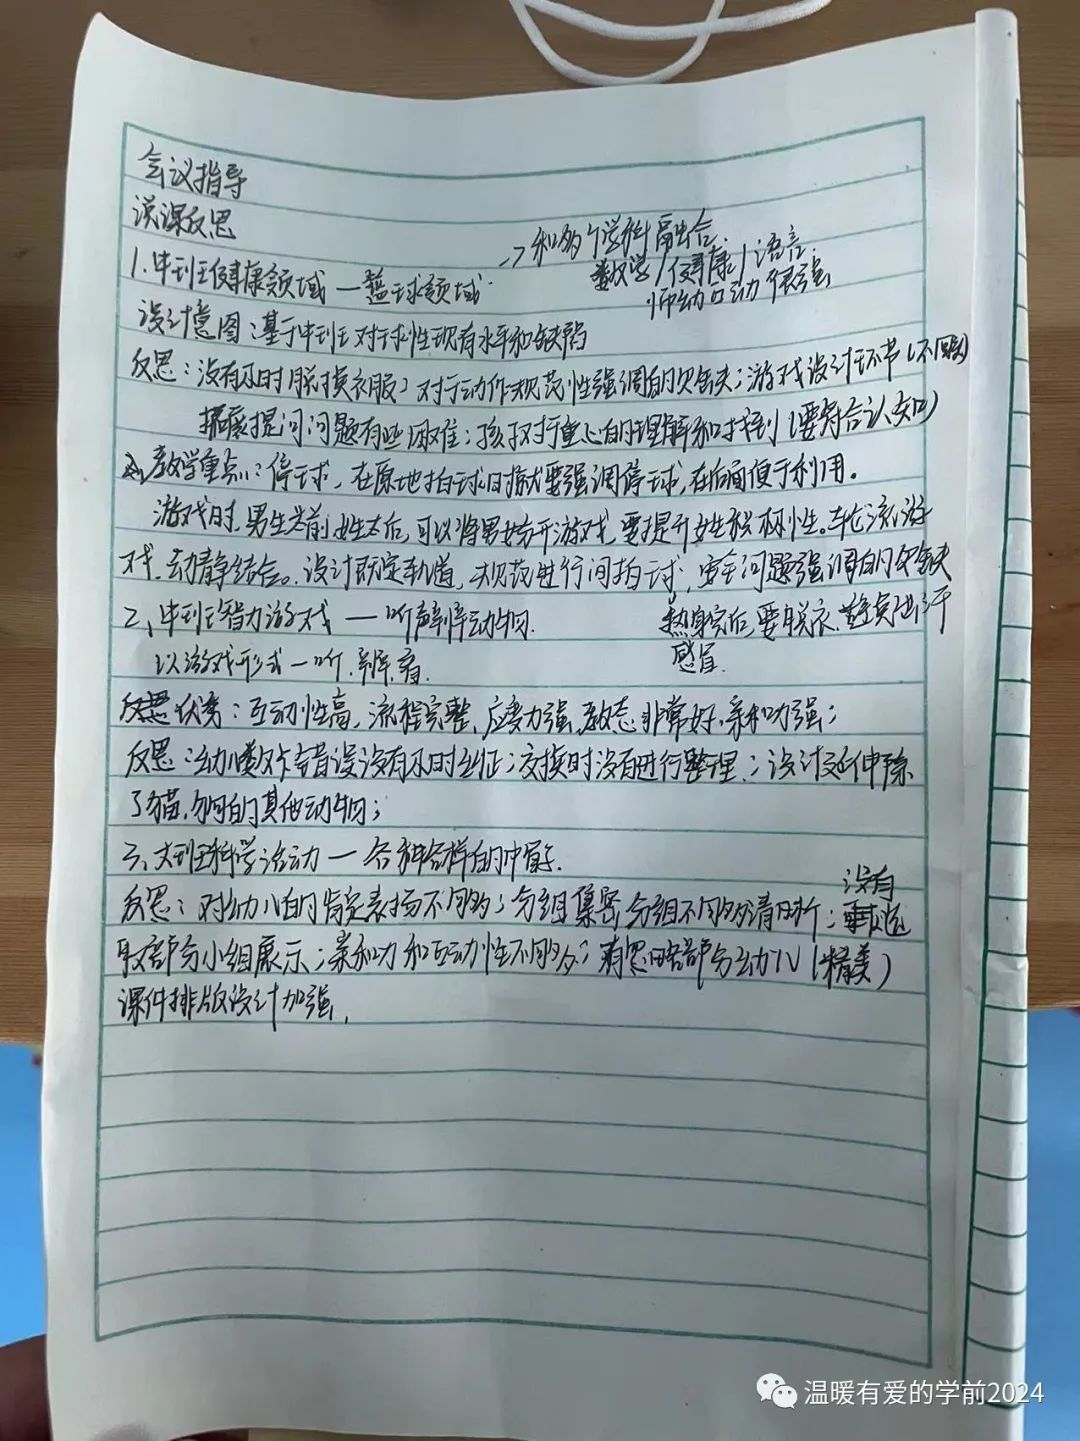 会议指导
说课反思
→和多个学科融合
数学/健康/语言
师幼互动很强
1.中班健康领域—篮球领域
设计意图:基于中班对球性现有水平和缺陷
反思:没有及时脱换衣服;对于动作规范性强调的欠缺;游戏设计环节(不明显)
提问问题有些困难;孩子对于重心的理解和找到(要符合认知)
教学重点:停球,在原地拍球时就要强调停球,在后面便于利用。
游戏时,男生在前女生在后,可以将男女分开游戏,要提升女生积极性。轮流游
戏,动静结合。设计既定轨道,规范进行间拍球,安全问题强调的欠缺
2、中班智力游戏—听声辨动物.
热身完后,要脱衣,避免出汗
感冒.
以游戏形式—听.辨.看.
反思优秀:互动性高,流程完整,应变力强,教态非常好,亲和力强;
反思:幼儿数字卡错误没有及时纠正;交换时没有进行整理;设计延伸除
了猫,狗的其他动物;
三、大班科学活动—各种各样的中国桥.
没有
反思:对幼儿的肯定表扬不够多;分组集聚分组不够清晰;
取部分小组展示;亲和力和互动性不够多;有忽略部分幼儿(精美)
课件排版设计加强,
温暖有爱的学前2024